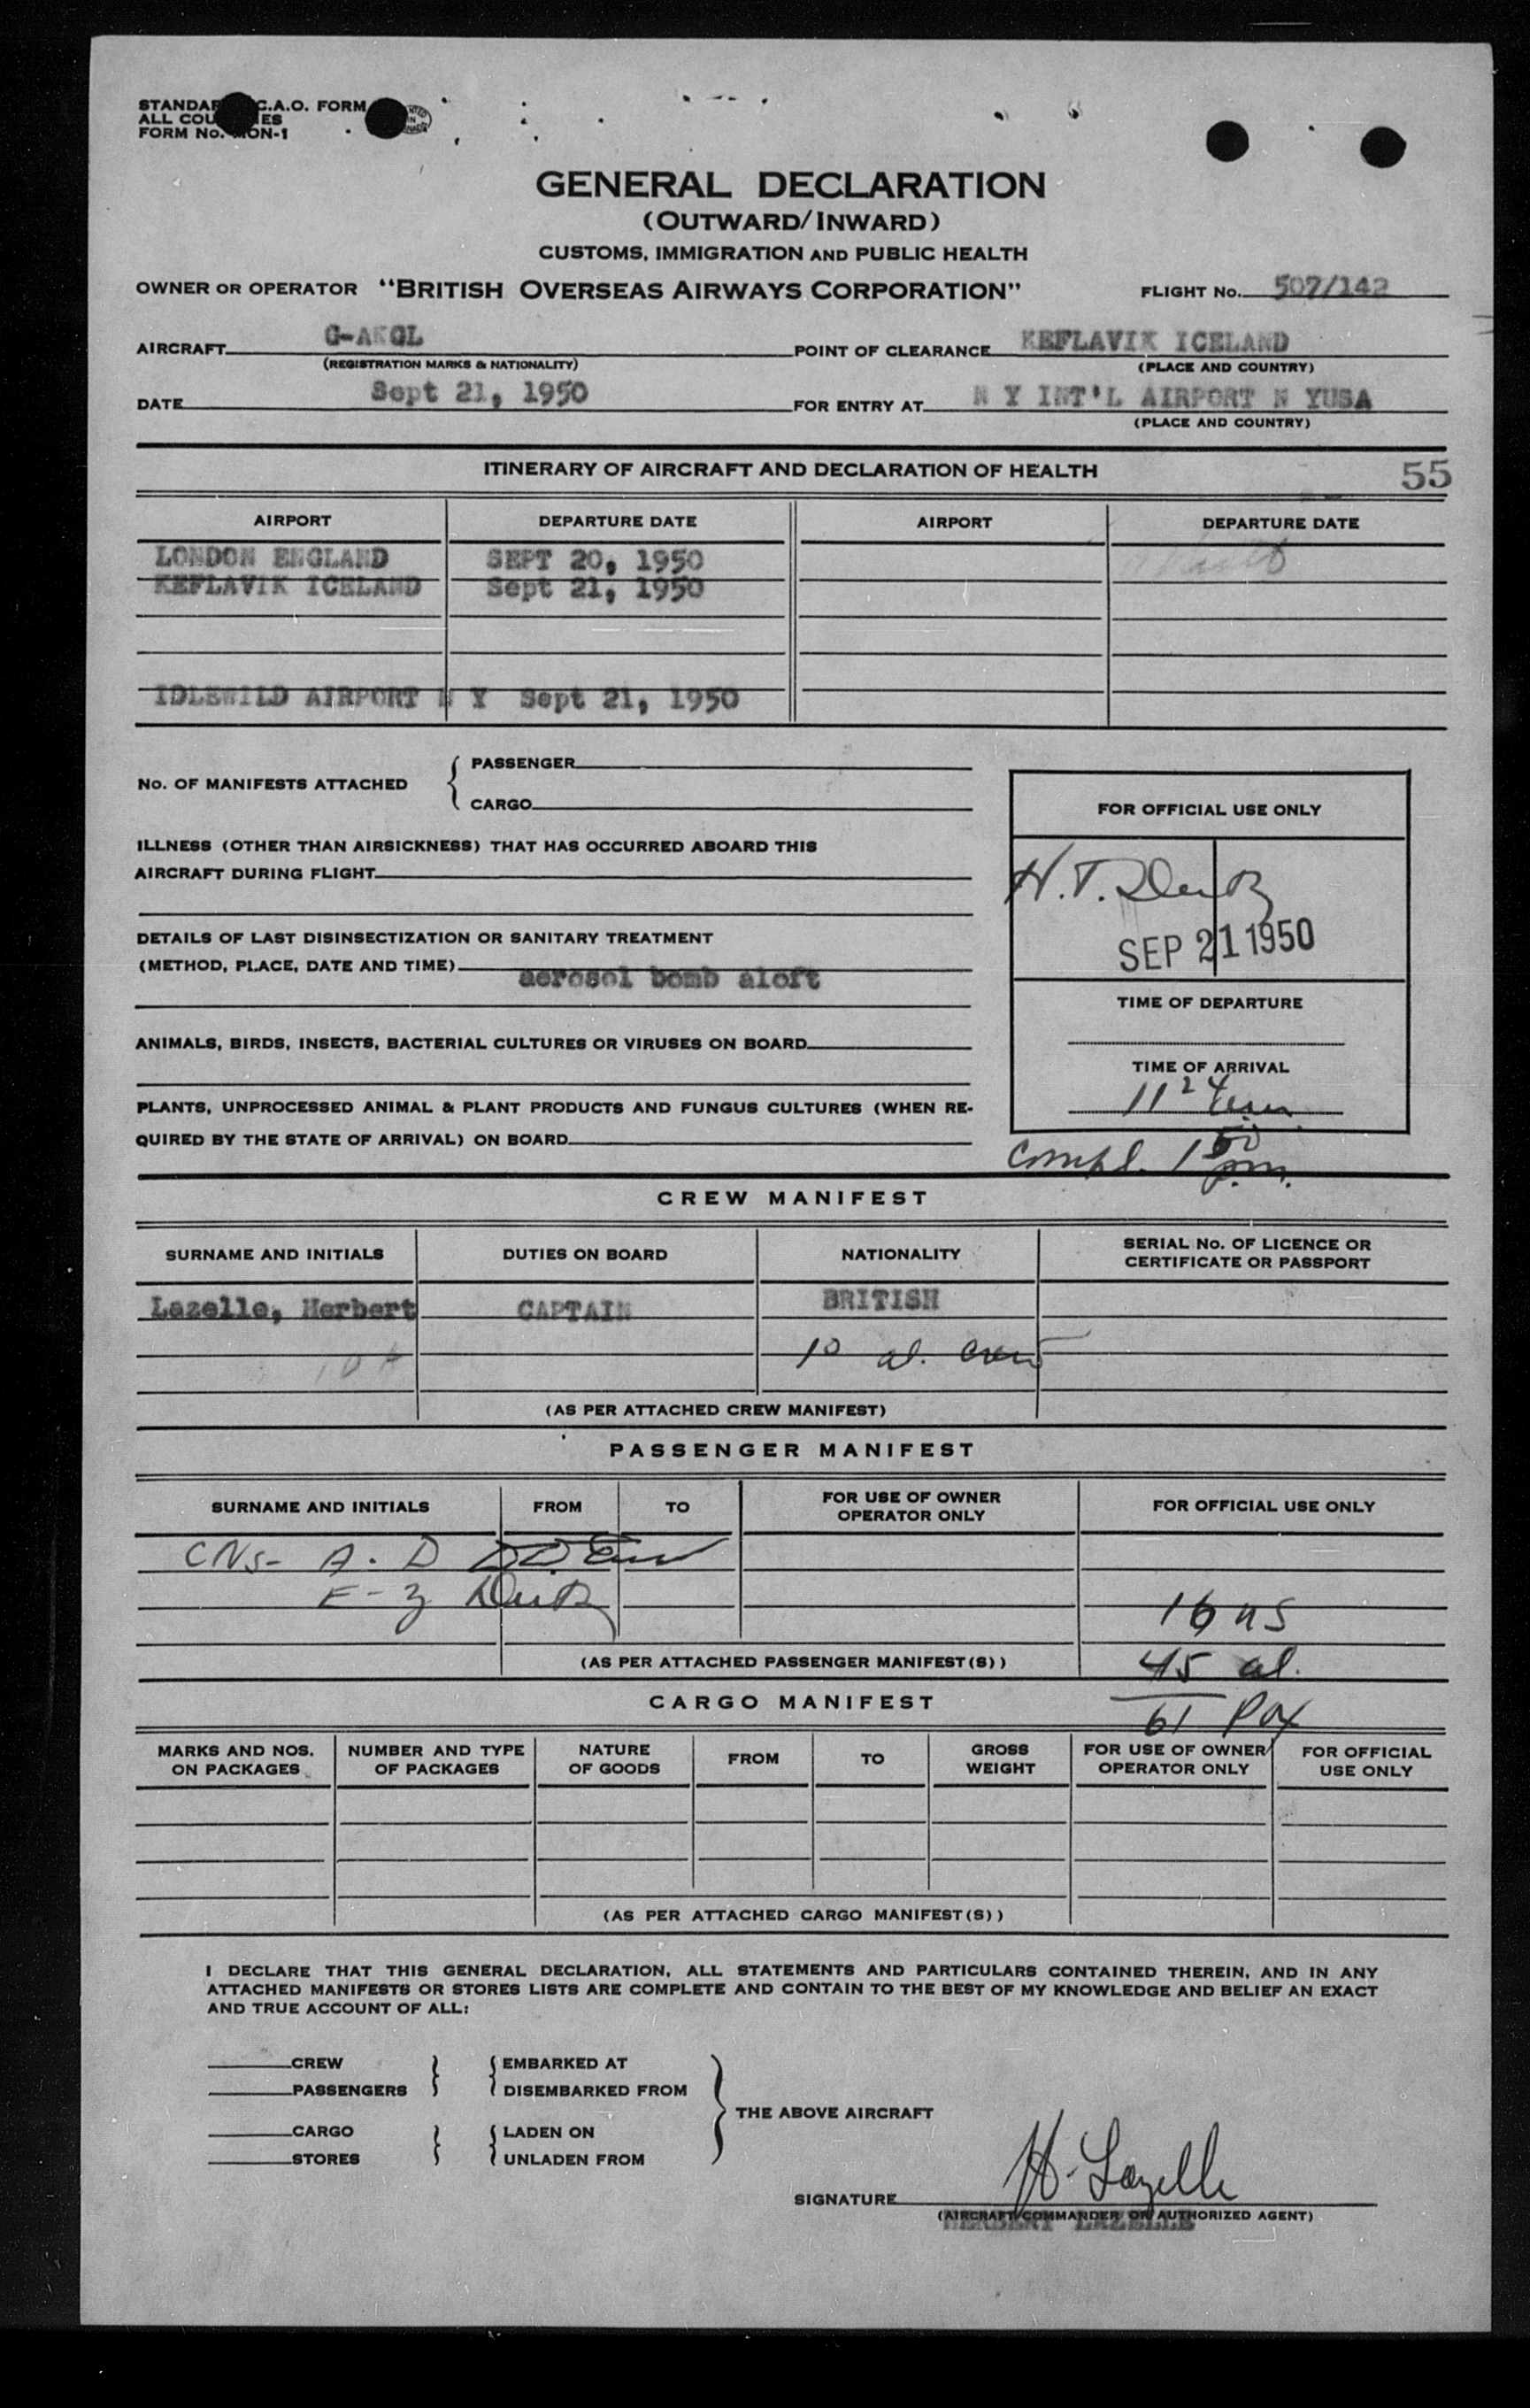 GENERAL DECLARATION
(OUTWARD/INWARD)
CUSTOMS, IMMIGRATION AND PUBLIC HEALTH
OWNER OR OPERATOR "BRITISH OVERSEAS AIRWAYS CORPORATION" FLIGHT No. 507/142
AIRCRAFT G-AKGL POINT OF CLEARANCE KEFLAVIK ICELAND
(REGISTRATION MARKS & NATIONALITY) (PLACE AND COUNTRY)
DATE Sept 21, 1950 FOR ENTRY AT N Y INT'L AIRPORT N YUSA
(PLACE AND COUNTRY)
ITINERARY OF AIRCRAFT AND DECLARATION OF HEALTH 55
AIRPORT DEPARTURE DATE AIRPORT DEPARTURE DATE
LONDON ENGLAND SEPT 20, 1950
KEFLAVIK ICELAND Sept 21, 1950
IDLEWILD AIRPORT N Y Sept 21, 1950
No. OF MANIFESTS ATTACHED { PASSENGER
CARGO
ILLNESS (OTHER THAN AIRSICKNESS) THAT HAS OCCURRED ABOARD THIS
AIRCRAFT DURING FLIGHT
DETAILS OF LAST DISINSECTIZATION OR SANITARY TREATMENT
(METHOD, PLACE, DATE AND TIME)
aerosol bomb aloft
ANIMALS, BIRDS, INSECTS, BACTERIAL CULTURES OR VIRUSES ON BOARD
PLANTS, UNPROCESSED ANIMAL & PLANT PRODUCTS AND FUNGUS CULTURES (WHEN RE-
QUIRED BY THE STATE OF ARRIVAL) ON BOARD
FOR OFFICIAL USE ONLY
H.T.
SEP 21 1950
TIME OF DEPARTURE
TIME OF ARRIVAL
11 24
Compl. 1 50 p.m.
CREW MANIFEST
SURNAME AND INITIALS DUTIES ON BOARD NATIONALITY SERIAL No. OF LICENCE OR
CERTIFICATE OR PASSPORT
Lazelle, Herbert CAPTAIN BRITISH
10 al. crew
(AS PER ATTACHED CREW MANIFEST)
PASSENGER MANIFEST
SURNAME AND INITIALS FROM TO FOR USE OF OWNER
OPERATOR ONLY FOR OFFICIAL USE ONLY
CNs- A. D
E - Z
16 us
(AS PER ATTACHED PASSENGER MANIFEST(S)) 45 al.
CARGO MANIFEST 61 pax
MARKS AND NOS.
ON PACKAGES NUMBER AND TYPE
OF PACKAGES NATURE
OF GOODS FROM TO GROSS
WEIGHT FOR USE OF OWNER
OPERATOR ONLY FOR OFFICIAL
USE ONLY
(AS PER ATTACHED CARGO MANIFEST(S))
I DECLARE THAT THIS GENERAL DECLARATION, ALL STATEMENTS AND PARTICULARS CONTAINED THEREIN, AND IN ANY
ATTACHED MANIFESTS OR STORES LISTS ARE COMPLETE AND CONTAIN TO THE BEST OF MY KNOWLEDGE AND BELIEF AN EXACT
AND TRUE ACCOUNT OF ALL:
CREW } { EMBARKED AT
PASSENGERS } { DISEMBARKED FROM
THE ABOVE AIRCRAFT
CARGO } { LADEN ON
STORES } { UNLADEN FROM
SIGNATURE H. Lazelle
(AIRCRAFT COMMANDER OR AUTHORIZED AGENT)
HERBERT LAZELLE